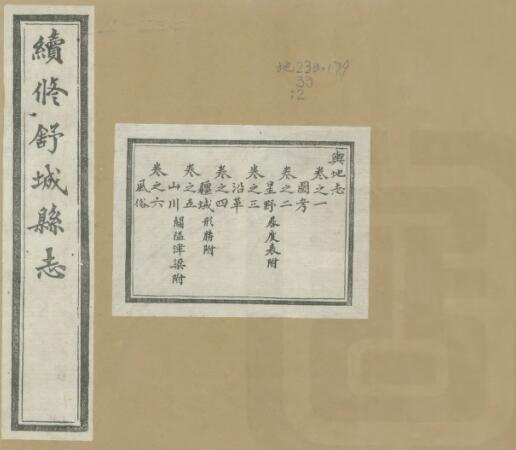 續修舒城縣志
地230·179
33
:2
輿地志
卷之一
圖考
卷之二
星野 晷度表附
卷之三
沿革
卷之四
疆域 形勝附
卷之五
山川 關隘津梁附
卷之六
風俗